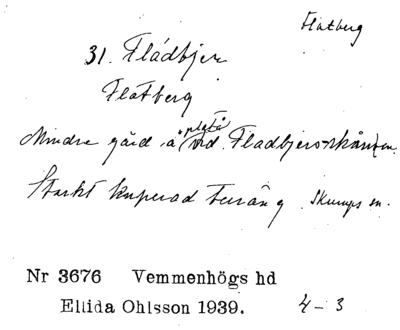 Flatberg
31. Flådbjer
Flatberg
Mindre gård å platå vid Fladbjers
Starkt kuperad terräng. Skurups sn.
Nr 3676 Vemmenhögs hd
Ellida Ohlsson 1939. 4-3